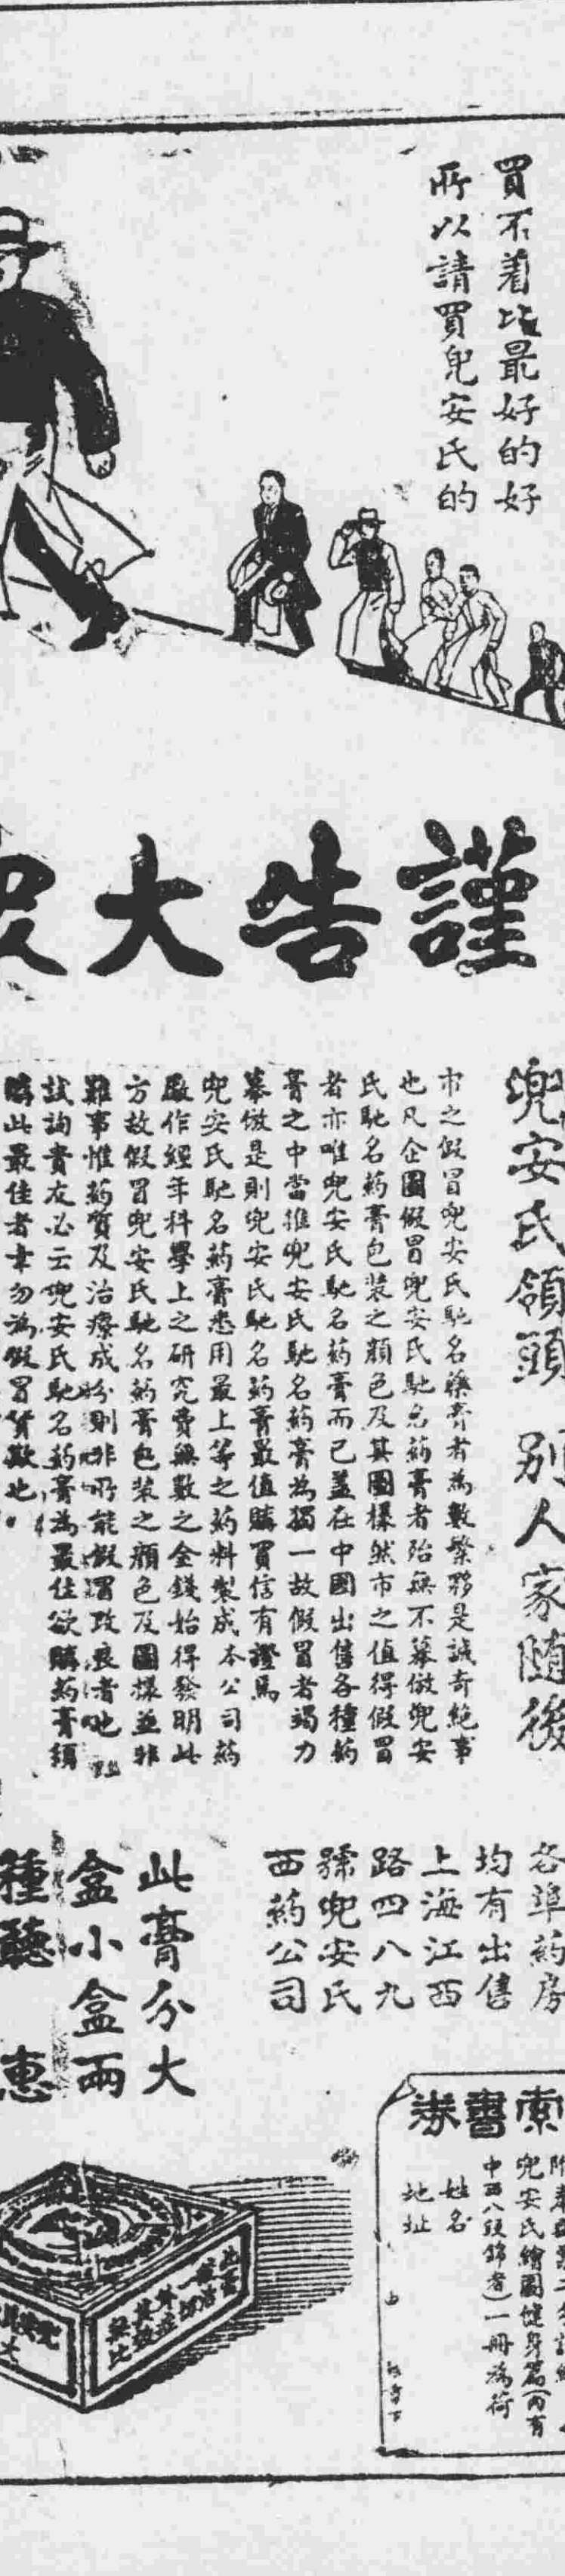 買不着比最好的好
所以請買兜安氏的
謹告大眾
兜安氏領頭 別人家隨後
市之假冒兜安氏馳名藥膏者為數繁夥是誠奇絕事
也凡企圖假冒兜安氏馳名葯膏者殆無不摹倣兜安
氏馳名葯膏包裝之顏色及其圖樣然市之值得假冒
者亦唯兜安氏馳名葯膏而已蓋在中國出售各種葯
膏之中當推兜安氏馳名葯膏為獨一故假冒者竭力
摹倣是則兜安氏馳名葯膏最值購買信有證焉
兜安氏馳名葯膏悉用最上等之葯料製成本公司葯
廠作經年科學上之研究費無數之金錢始得發明此
方故假冒兜安氏馳名葯膏包裝之顏色及圖樣並非
難事惟葯質及治療成份則非所能假冒
試詢貴友必云兜安氏馳名葯膏為最佳欲購葯膏須
購此最佳者幸勿為假冒貨欺也
各埠葯房
均有出售
上海江西
路四八九
號兜安氏
西葯公司
此膏分大
盒小盒兩
種聽 惠
索書券
兜安氏繪圖健身篇(內有
中西八段錦者)一冊為荷
姓名
地址